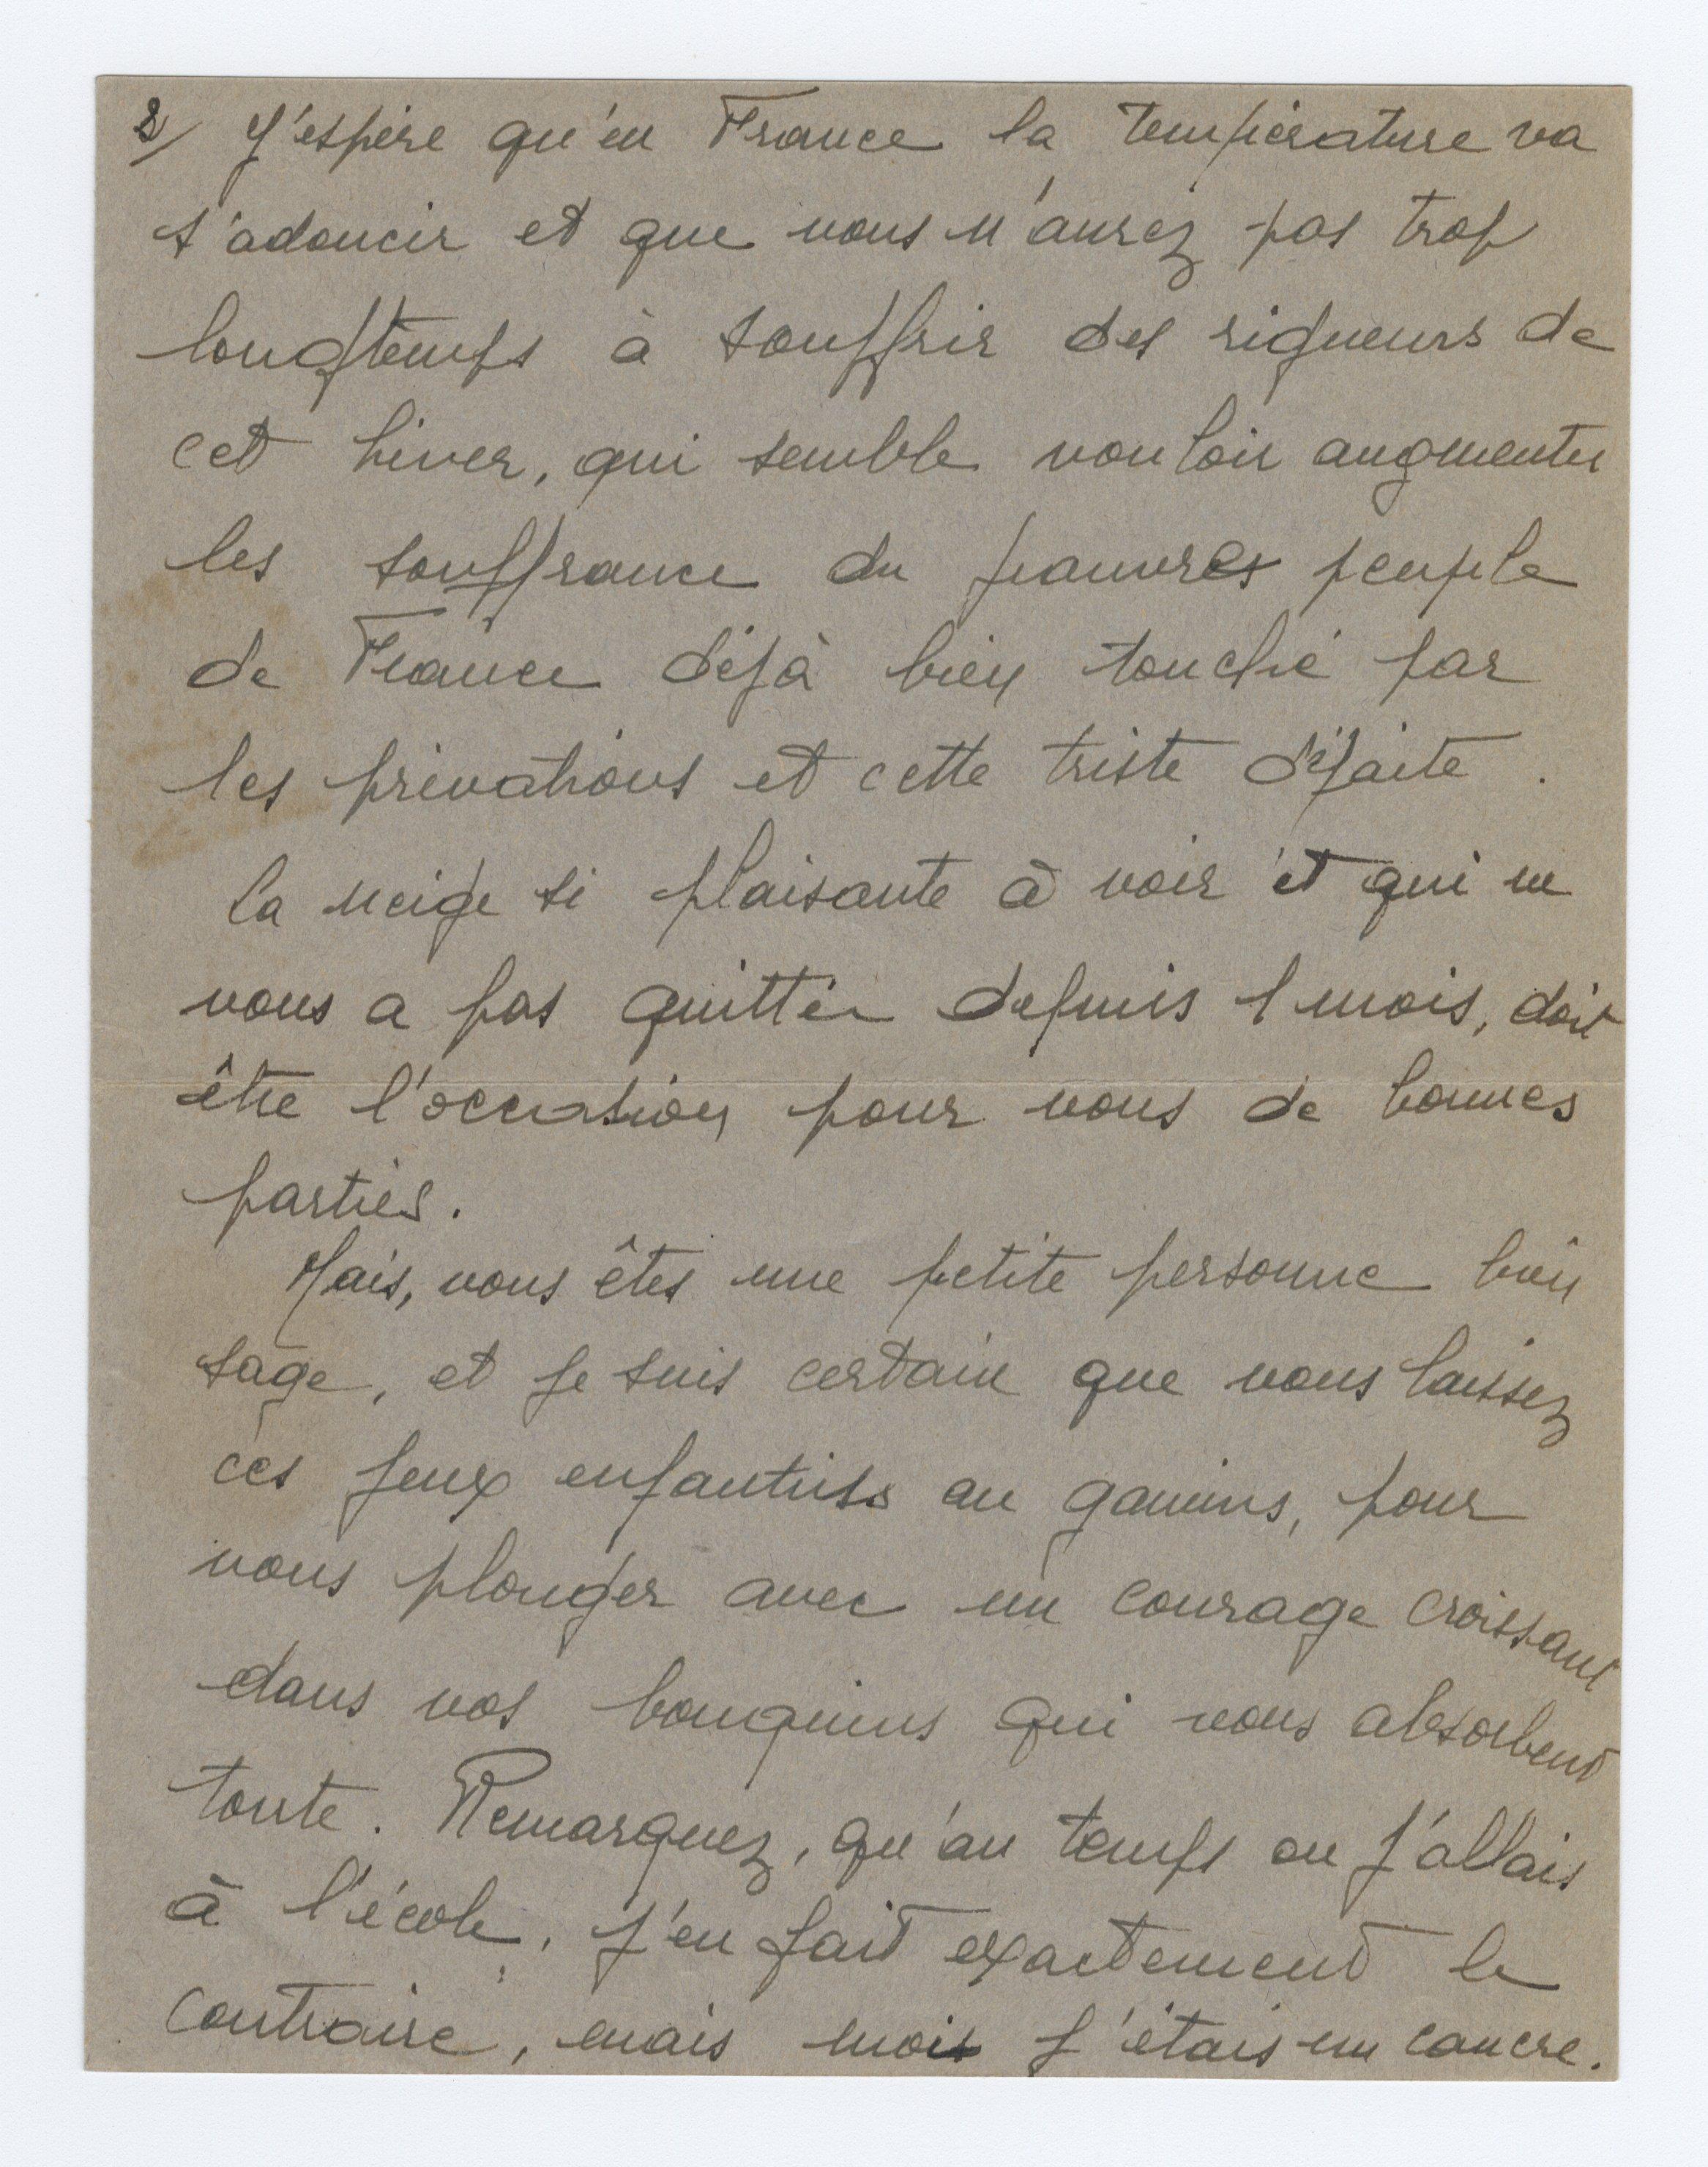 2/ J'espère qu'en France la température va
s'adoucir et que vous n'aurez pas trop
longtemps à souffrir des rigueurs de
cet hiver, qui semble vouloir augmenter
les souffrance du pauvres peuple
de France déjà bien touché par
les privations et cette triste défaite.
La neige si plaisante à voir et qui ne
vous a pas quitter depuis 1 mois, doit
être l'occasion pour vous de bonnes
parties.
Mais, vous êtes une petite personne bien
sage, et je suis certain que vous laissez
ces jeux enfantins au gamins, pour
vous plonger avec un courage croissant
dans vos bouquins qui vous absorbent
toute. Remarquez, qu'au temps ou j'allais
à l'école, j'en fait exactement le
contraire, mais moi j'étais un cancre.